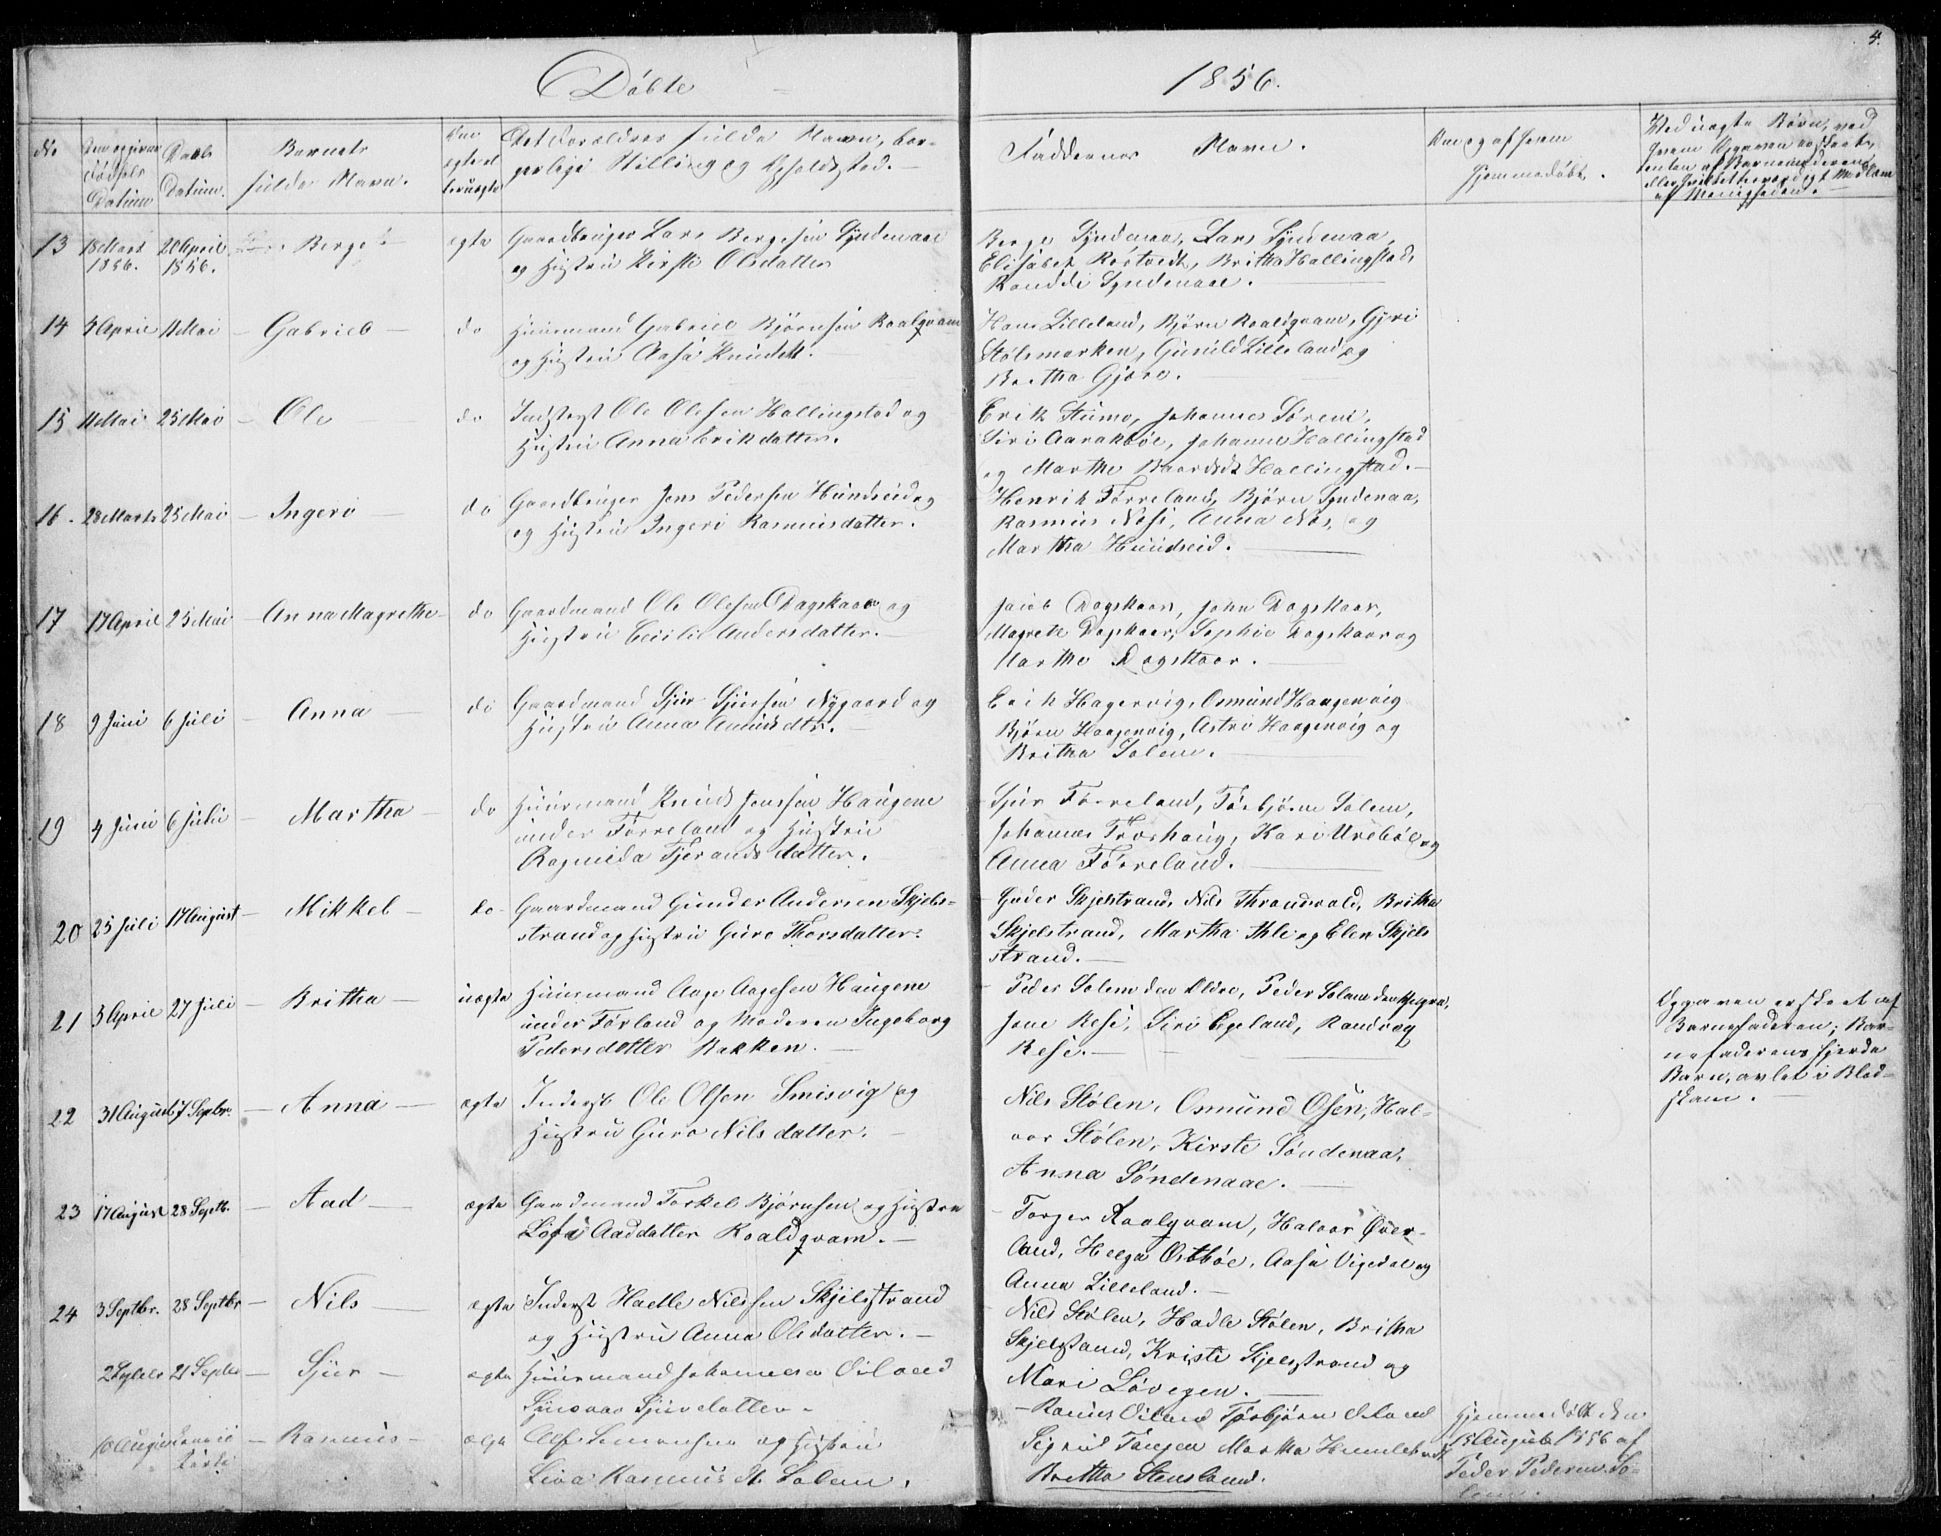 4.
Döbte 1856.
No
Den opgivne Födsels Datum
Daabs Datum.
Barnets fulde Navn.
Om ægte el. uægte
Det Forældres fulde Navn, borgerlige Stilling og Opholdssted.
Faddernes Navn.
Om og af hvem hjemmedöbt.
Ved uægte Börn, ved hvem Opgaven er skeet, enten af Barnemoderen eller Medlem af Menigheden.
13 18 Marts 1856. 20 April 1856. Berge ægte Gaardbruger Lars Bergesen Syndenaae
og Hustru Kirsti Olsdatter
Berge Syndenaa, Lars Syndenaa,
Elisabet Rostvedt, Britha Hallingstad,
Randdi Syndenaae.
14 4 April 11 Mai – Gabriel – do Huusmand Gabriel Björnsen Roalqvam
og Hustru Aasa Knudsdt.
Hans Lilleland, Björn Roaldqvam, Gyri
Stölsmarken, Gunild Lilleland og
Britha Gjære.
15 11 Mai 25 Mai – Ole do Inderst Ole Olesen Hallingstad og
Hustru Anna Erikdatter.
Erik Stumo, Johannes
Siri Aarakböe, Johanne Hallingstad
og Marthe Baardsdt Hallingstad.–
16. 28 Marts 25 Mai – Ingeri – do Gaardbruger Jens Pedersen Hundseid og
og Hustru Ingeri Rasmusdatter.
Henrik Förreland, Björn Syndenaa,
Rasmus Næsi, Anna Næs, og
Martha Hundseid.
17 17 April 25 Mai – Anna Magrethe – do Gaardmand Ole Olesen Dagskaar og
Hustru Cecilie Andersdatter.–
Jacob Dagskaar, John Dagskaar,
Magrete Dagskaar, Sophie Dagskaar og
Marthe Dagskaar.
18 9 Juni 6 Juli – Anna – do Gaardmand Sjur Sjursen Nygaard og
Hustru Anna Amundsdtr.–
Erik Hagenvig, Osmund Haagenvig
Björn Haagenvig, Astri Haagenvig og
Britha Solem.
19 4 Juni 6 Juli – Martha – do Huusmand Knud Jenssen Haugene
under Förreland og Hustru
Ragnilda Tjerandsdatter.
Sjur Förreland, Torbjörn Solem,
Johannes Træshaug, Kari Urebö og
Anna Förreland.
20 25 Juli 17 August – Mikkel – do– Gaardmand Gunder Andersen Skjels-
strand og Hustru Guro Thorsdatter.
Guder Skjelstrand, Nils Thrandsvold, Britha
Skjelstrand, Martha Ihle og Elen Skjel
strand.–
21 3 April 27 Juli – Britha – uægte Huusmand Aage Aagesen Haugene
under Förland og Moderen Ingeborg
Pedersdatter Bakken.–
Peder Solem den Ældre, Peder Solem den yngre,
Jone Resi, Siri Egeland, Randveg
Resi.–
Opgaven er skeet af
Barnefaderen; Bar-
nefaderens fjerde
Barn, avlet i Blod-
skam.
22 31 August 7 Septbr. – Anna – ægte Inderst Ole Olsen Smisvig og
Hustru Guro Nilsdatter.–
Nils Stölen, Osmund Osen, Hal-
vor Stölen, Kirste Söndenaa,
Anna Söndenaae.–
23 17 August 28 Septb. – Aad – ægte Gaardmand Torkel Björnsen og Hustru
Aaddatter Roaldqvam.–
Torger Roalqvam, Halvor Över-
land, Helga Ostböe, Aasa Vigedal og
Anna Lilleland.–
24 3 Septbr. 28 Septbr – Nils – ægte Inderst Hadle Nilssen Skjelstrand
og Hustru Anna Olsdatter.–
Nils Stölen, Hadle Stölen, Britha
Skjelstand, Kristi Skjelstrand og
Mari Lövegen.
21 Septbr – Sjur – ægte Huusmand Johannes Öiland
Sjursdatter–
– Rasmus Öiland Torbjörn Öiland
Sigrid Tangen Martha
Britha Stensland.
10 August – Rasmus – ægte Simonsen og Hustru
Rasmusdt. Solem.
Hjemmedöbt den
15 August 1856 af
Peder Pedersen So-
lem.